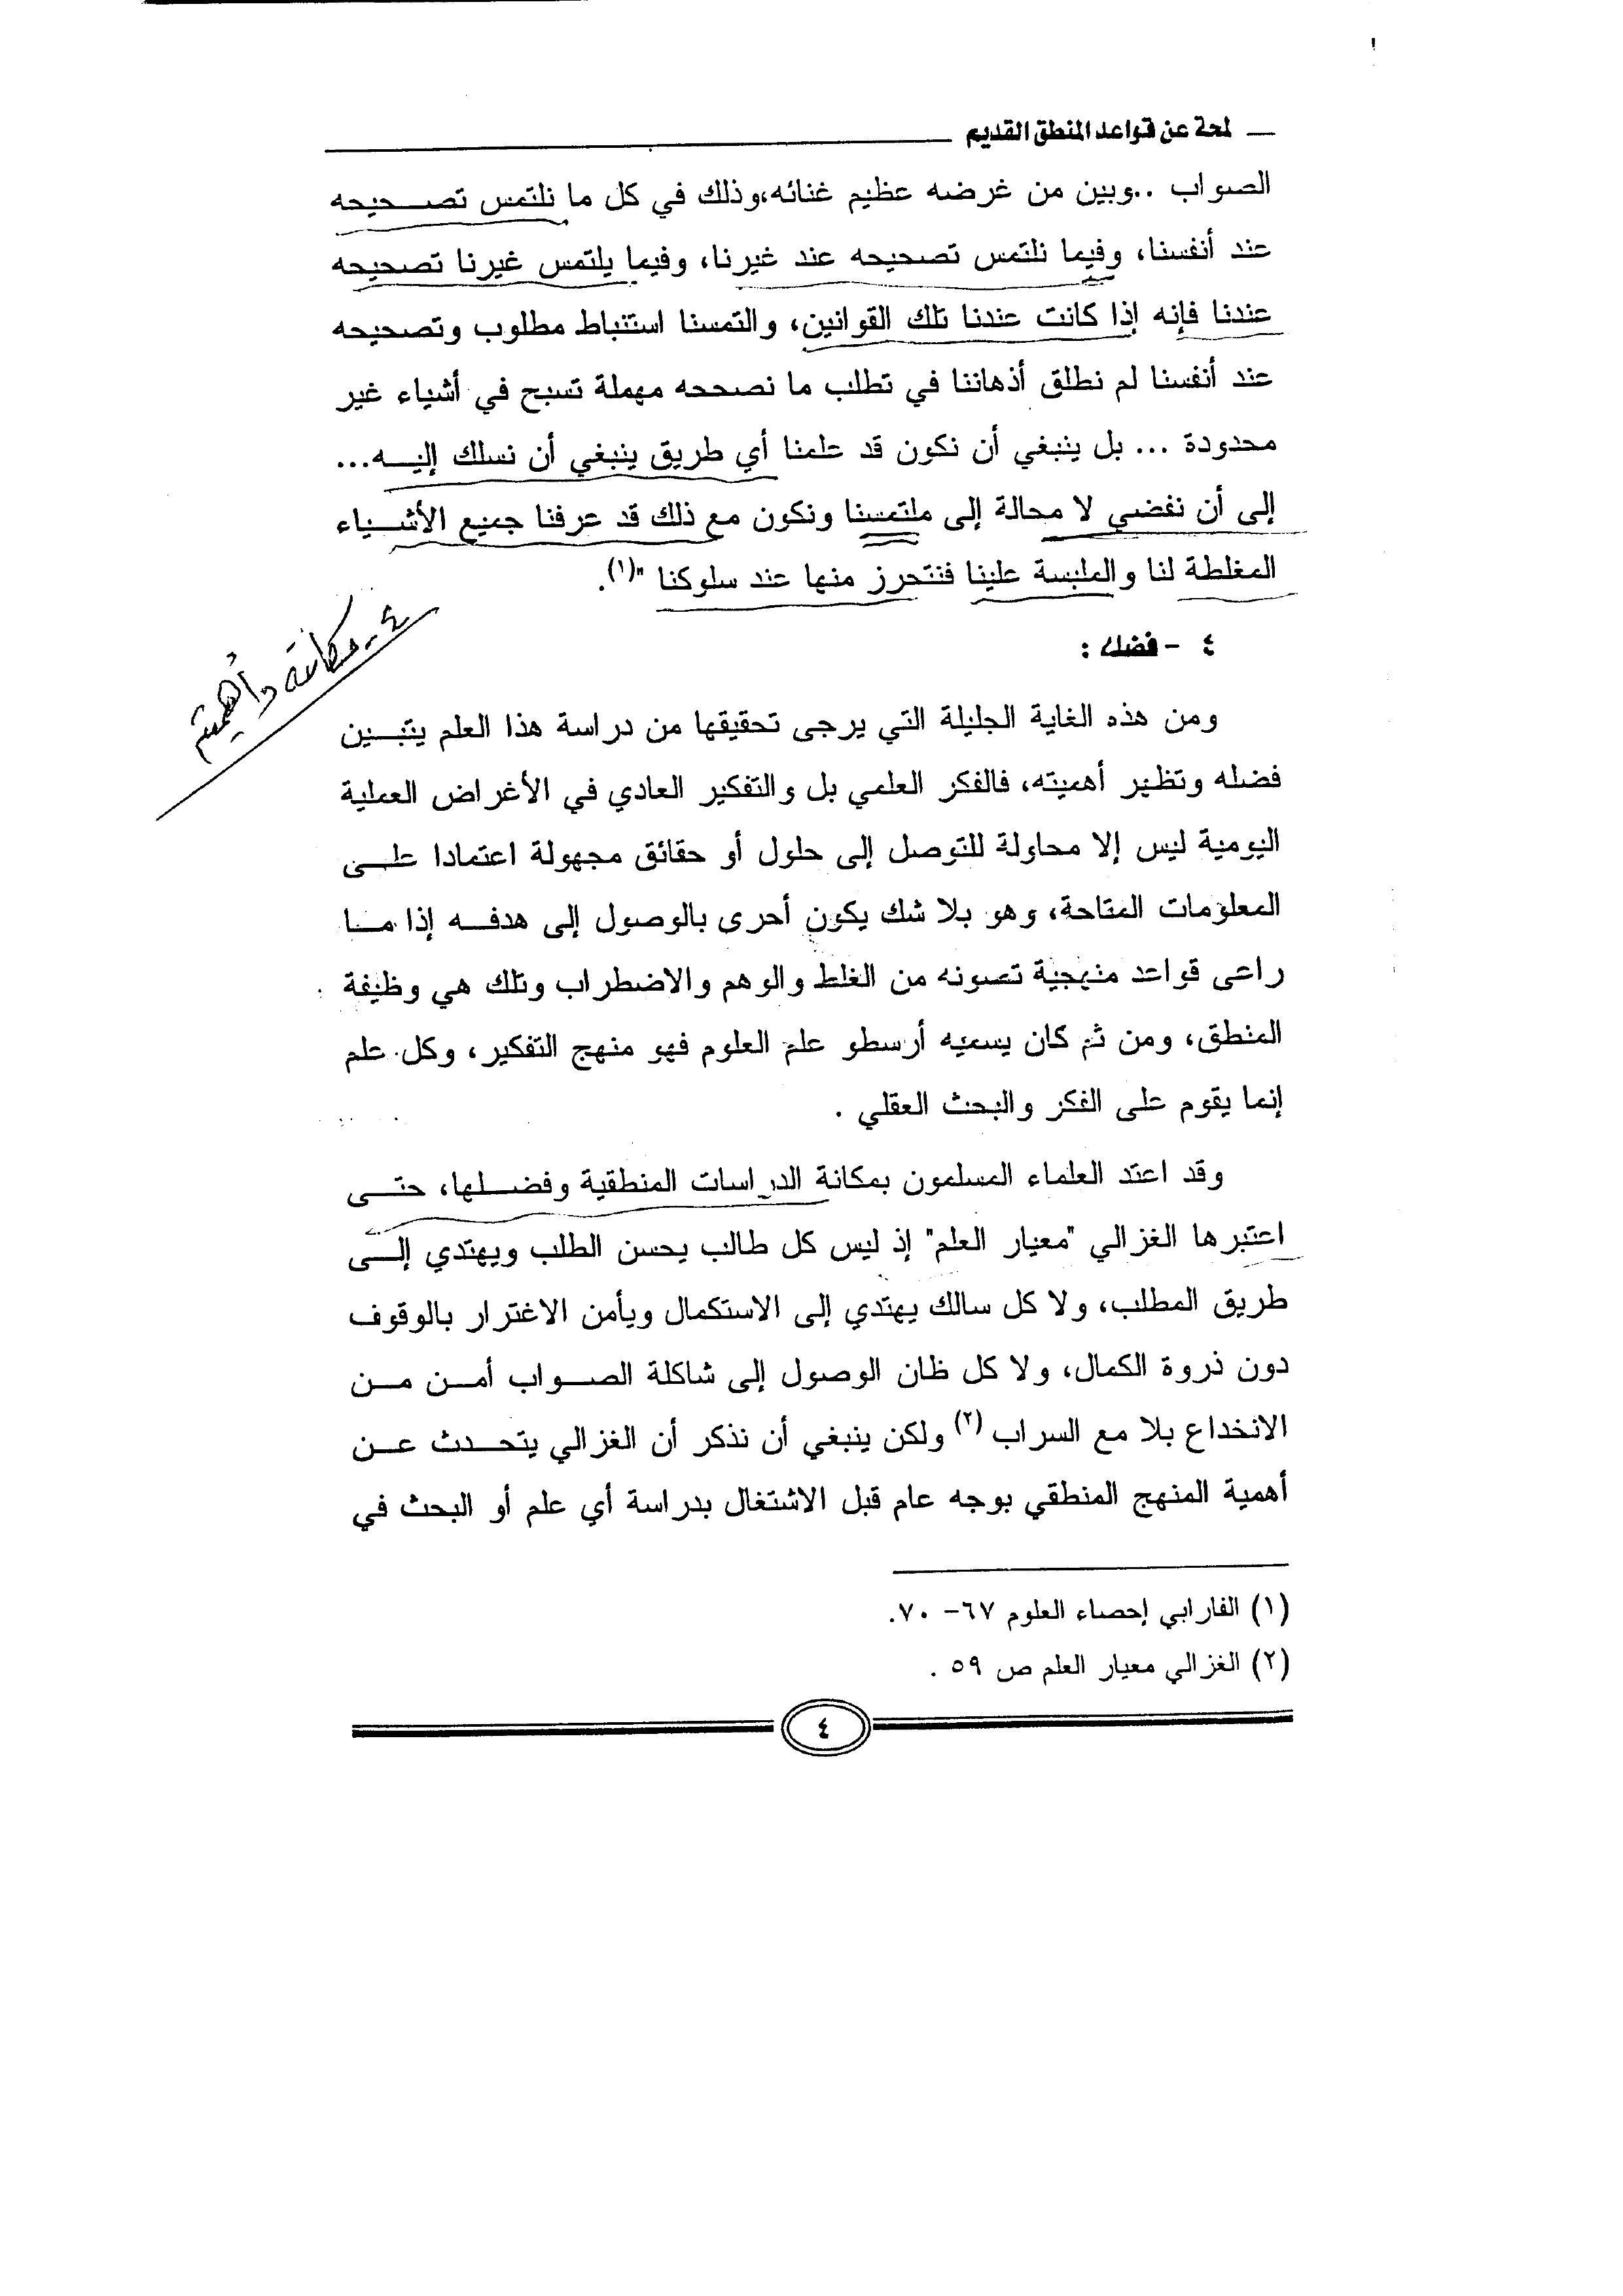 لمحة عن قواعد المنطق القديم
الصواب ..وبين من غرضه عظيم غنائه،وذلك في كل ما نلتمس تصحيحه
عند أنفسنا، وفيما نلتمس تصحيحه عند غيرنا، وفيما يلتمس غيرنا تصحيحه
عندنا فإنه إذا كانت عندنا تلك القوانين، والتمسنا استنباط مطلوب وتصحيحه
عند أنفسنا لم نطلق أذهاننا في تطلب ما نصححه مهملة تسبح في أشياء غير
محدودة ... بل ينبغي أن نكون قد علمنا أي طريق ينبغي أن نسلك إليه...
إلى أن نفضي لا محالة إلى ملتمسنا ونكون مع ذلك قد عرفنا جميع الأشياء
المغلطة لنا والملبسة علينا فنتحرز منها عند سلوكنا "(١).
٤- مكانته وأهميته
٤ - فضله :
ومن هذه الغاية الجليلة التي يرجى تحقيقها من دراسة هذا العلم يتبين
فضله وتظهر أهميته، فالفكر العلمي بل والتفكير العادي في الأغراض العملية
اليومية ليس إلا محاولة للتوصل إلى حلول أو حقائق مجهولة اعتمادا على
المعلومات المتاحة، وهو بلا شك يكون أحرى بالوصول إلى هدفه إذا ما
راعى قواعد منهجية تصونه من الغلط والوهم والاضطراب وتلك هي وظيفة
المنطق، ومن ثم كان يسميه أرسطو علم العلوم فهو منهج التفكير، وكل علم
إنما يقوم على الفكر والبحث العقلي .
وقد اعتد العلماء المسلمون بمكانة الدراسات المنطقية وفضلها، حتى
اعتبرها الغزالي "معيار العلم" إذ ليس كل طالب يحسن الطلب ويهتدي إلى
طريق المطلب، ولا كل سالك يهتدي إلى الاستكمال ويأمن الاغترار بالوقوف
دون ذروة الكمال، ولا كل ظان الوصول إلى شاكلة الصواب أمن من
الانخداع بلا مع السراب (٢) ولكن ينبغي أن نذكر أن الغزالي يتحدث عن
أهمية المنهج المنطقي بوجه عام قبل الاشتغال بدراسة أي علم أو البحث في
(١) الفارابي إحصاء العلوم ٦٧- ٧٠.
(٢) الغزالي معيار العلم ص ٥٩ .
٤